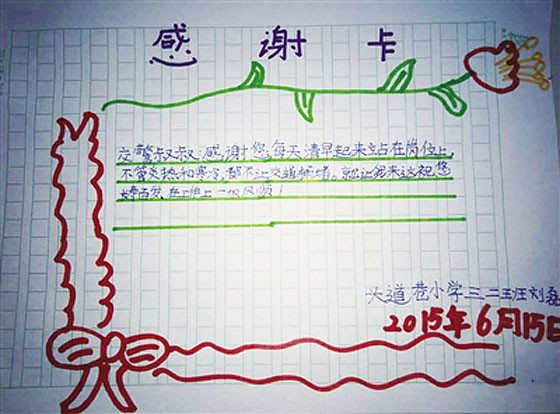 感谢卡
交警叔叔,感谢您,每天清早起来站在岗位上,
不管炎热和寒冷,都不让交通拥堵。就让我来这祝您
上一帆风顺!
头道巷小学三二班刘磊
2015年6月15日